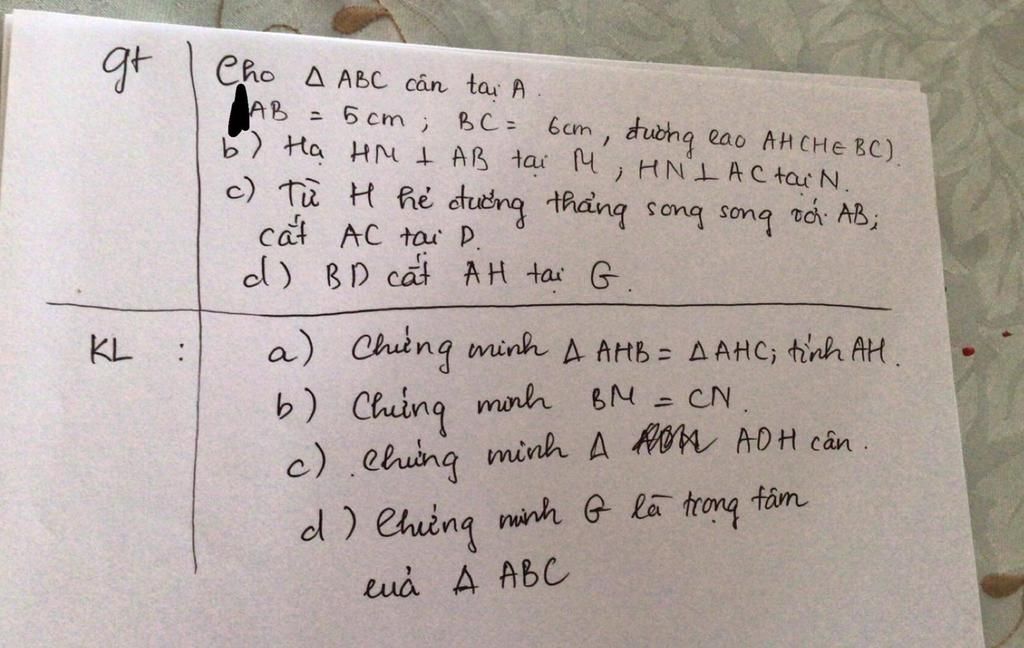 gt
Cho Δ ABC cân tại A.
AB = 5cm; BC = 6cm, đường cao AH (H∈BC).
b) Hạ HM ⊥ AB tại M; HN ⊥ AC tại N.
c) Từ H kẻ đường thẳng song song với AB;
cắt AC tại D.
d) BD cắt AH tại G.
KL : a) Chứng minh Δ AHB = Δ AHC; tính AH.
b) Chứng minh BM = CN.
c) Chứng minh Δ ADH cân.
d) Chứng minh G là trọng tâm
cuả Δ ABC